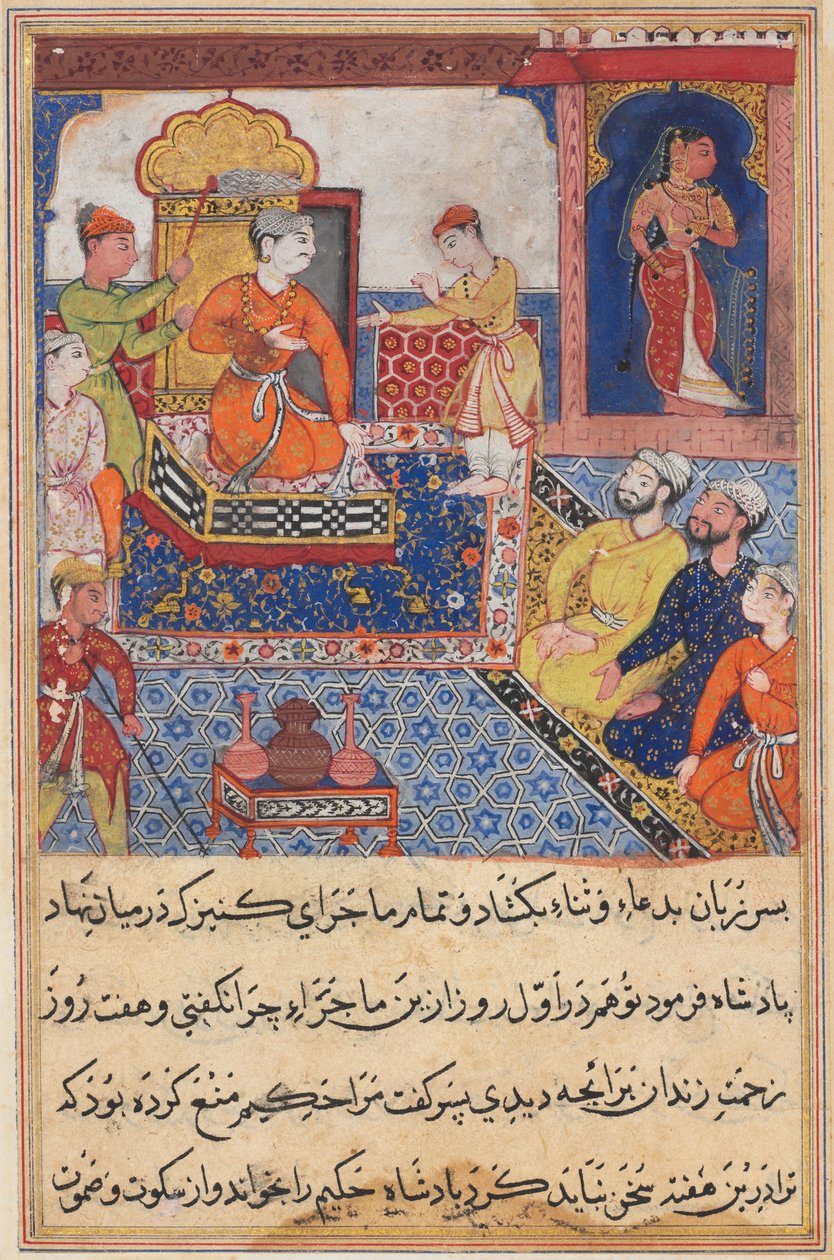 پس زبان بدعاءِ و ثناءِ بکشاد و تمام ماجرای کنیزک در میان نهاد
پادشاه فرمود تو هم در اوّل روز ازین ماجراءِ چرا نکفتی و هفت روز
زحمت زندان برائچه دیدی پسر کفت مرا حکیم منع کرده بود که
ترا درین هفته سخن نباید کرد پادشاه حکیم را بخواند و از سکوت و صموت